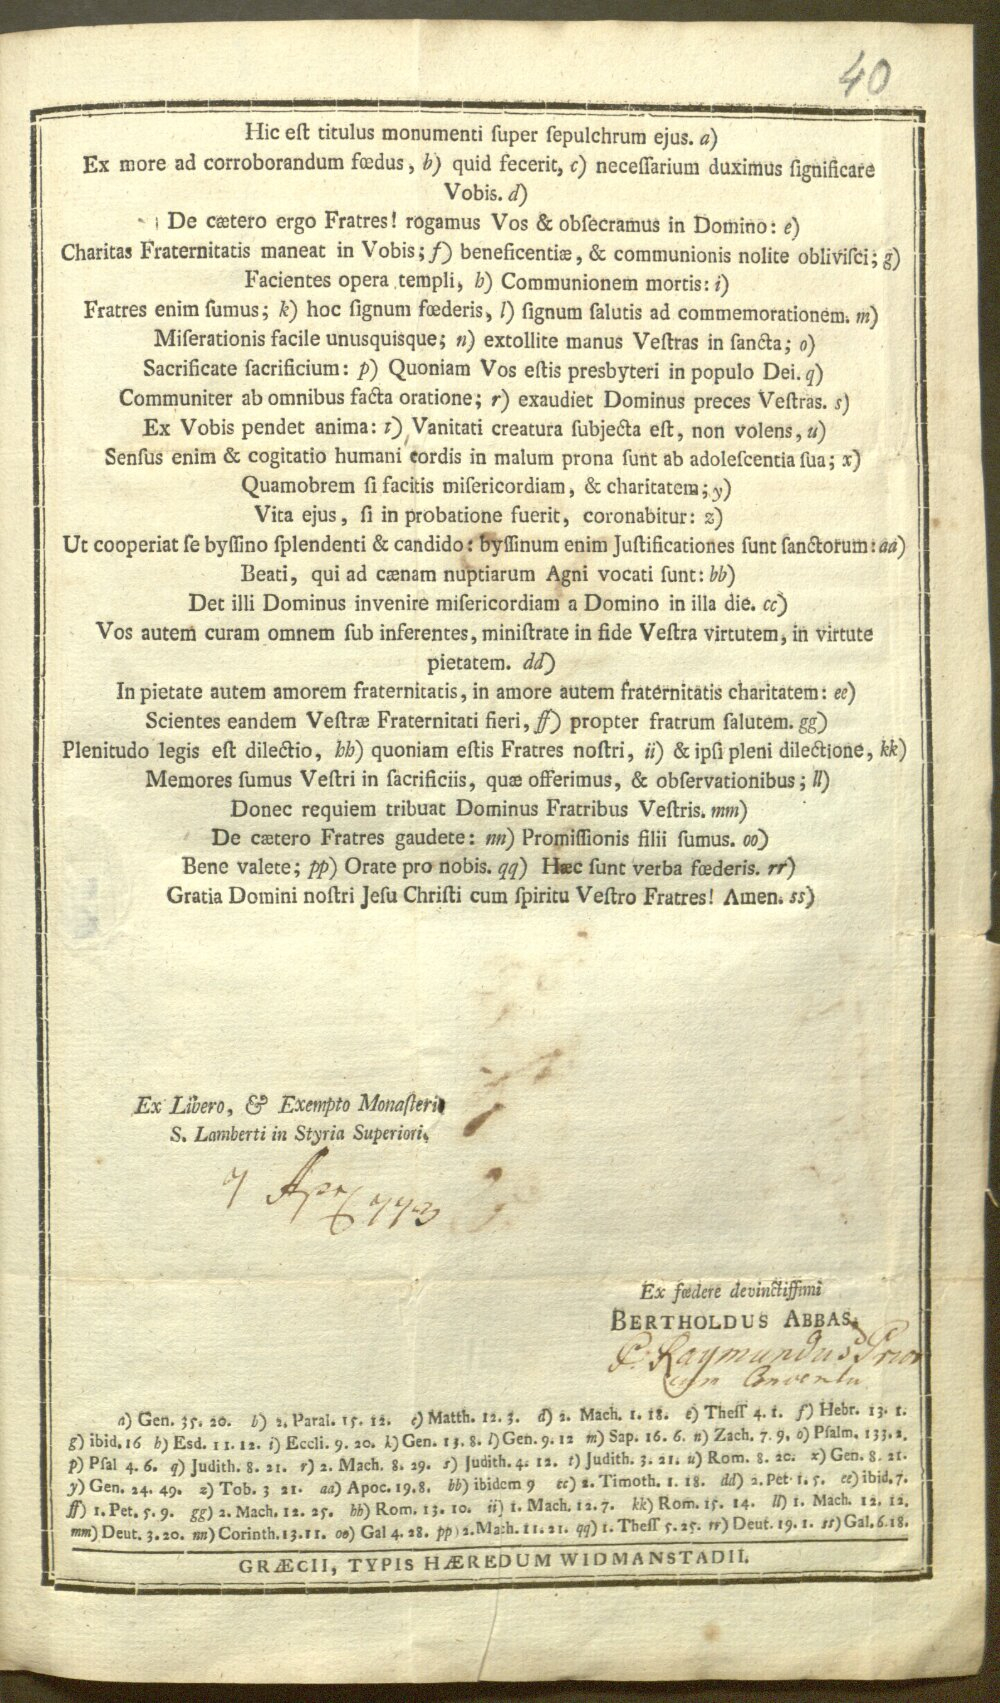 40
Hic eſt titulus monumenti ſuper ſepulchrum ejus. a)
Ex more ad corroborandum fœdus, b) quid fecerit, c) neceſſarium duximus ſignificare
Vobis. d)
De cætero ergo Fratres! rogamus Vos & obſecramus in Domino: e)
Charitas Fraternitatis maneat in Vobis; f) beneficentiæ, & communionis nolite obliviſci; g)
Facientes opera templi, h) Communionem mortis: i)
Fratres enim ſumus; k) hoc ſignum fœderis, l) ſignum ſalutis ad commemorationem. m)
Miſerationis facile unusquisque; n) extollite manus Veſtras in ſancta; o)
Sacrificate ſacrificium: p) Quoniam Vos eſtis presbyteri in populo Dei. q)
Communiter ab omnibus facta oratione; r) exaudiet Dominus preces Veſtras. s)
Ex Vobis pendet anima: t) Vanitati creatura ſubjecta eſt, non volens, u)
Senſus enim & cogitatio humani cordis in malum prona ſunt ab adoleſcentia ſua; x)
Quamobrem ſi facitis miſericordiam, & charitatem; y)
Vita ejus, ſi in probatione fuerit, coronabitur: z)
Ut cooperiat ſe byſſino ſplendenti & candido: byſſinum enim Juſtificationes ſunt ſanctorum: aa)
Beati, qui ad cænam nuptiarum Agni vocati ſunt: bb)
Det illi Dominus invenire miſericordiam a Domino in illa die. cc)
Vos autem curam omnem ſub inferentes, miniſtrate in fide Veſtra virtutem, in virtute
pietatem. dd)
In pietate autem amorem fraternitatis, in amore autem fraternitatis charitatem: ee)
Scientes eandem Veſtræ Fraternitati fieri, ff) propter fratrum ſalutem. gg)
Plenitudo legis eſt dilectio, hh) quoniam eſtis Fratres noſtri, ii) & ipſi pleni dilectione, kk)
Memores ſumus Veſtri in ſacrificiis, quæ offerimus, & obſervationibus; ll)
Donec requiem tribuat Dominus Fratribus Veſtris. mm)
De cætero Fratres gaudete: nn) Promiſſionis filii ſumus. oo)
Bene valete; pp) Orate pro nobis. qq) Hæc ſunt verba fœderis. rr)
Gratia Domini noſtri Jeſu Chriſti cum ſpiritu Veſtro Fratres! Amen. ss)
Ex Libero, & Exempto Monaſterio
S. Lamberti in Styria Superiori.
7 Apr 1773
Ex fœdere devinctiſſimi
BERTHOLDUS ABBAS.
P. Raymundus Prior
cum Conventu
a) Gen. 35. 20. b) 2. Paral. 15. 12. c) Matth. 12. 3. d) 2. Mach. 1. 18. e) Theſſ 4. 1. f) Hebr. 13. 1.
g) ibid. 16 h) Esd. 11. 12. i) Eccli. 9. 20. k) Gen. 13. 8. l) Gen. 9. 12 m) Sap. 16. 6. n) Zach. 7. 9. o) Pſalm. 133. 2.
p) Pſal 4. 6. q) Judith. 8. 21. r) 2. Mach. 8. 29. s) Judith. 4. 12. t) Judith. 3. 21. u) Rom. 8. 20. x) Gen. 8. 21.
y) Gen. 24. 49. z) Tob. 3 21. aa) Apoc. 19. 8. bb) ibidem 9 cc) 2. Timoth. 1. 18. dd) 2. Pet. 1. 5. ee) ibid. 7.
ff) 1. Pet. 5. 9. gg) 2. Mach. 12. 25. hh) Rom. 13. 10. ii) 1. Mach. 12. 7. kk) Rom. 15. 14. ll) 1. Mach. 12. 12.
mm) Deut. 3. 20. nn) Corinth. 13. 11. oo) Gal 4. 28. pp) 2. Mach. 11. 21. qq) 1. Theſſ 5. 25. rr) Deut. 19. 1. ss) Gal. 6. 18.
GRÆCII, TYPIS HÆREDUM WIDMANSTADII.